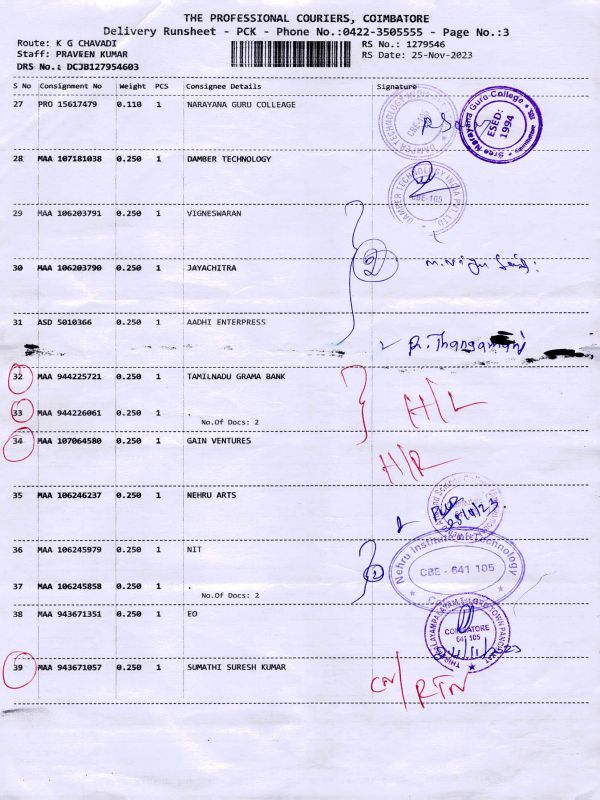 THE PROFESSIONAL COURIERS, COIMBATORE
Delivery Runsheet - PCK - Phone No.:0422-3505555 - Page No.:3
Route: K G CHAVADI
RS No.: 1279546
Staff: PRAVEEN KUMAR
RS Date: 25-Nov-2023
DRS No.: DCJB127954603
S No Consignment No Weight PCS Consignee Details Signature
27 PRO 15617479 0.110 1 NARAYANA GURU COLLEAGE
Sree Narayana Guru College
ESED: 1994
28 MAA 107181038 0.250 1 DAMBER TECHNOLOGY
DAMPER TECHNOLOGY INDIA PVT. LTD
CBE-105
29 MAA 106203791 0.250 1 VIGNESWARAN
2
30 MAA 106203790 0.250 1 JAYACHITRA
31 ASD 5010366 0.250 1 AADHI ENTERPRESS
R. Thangamani
32 MAA 944225721 0.250 1 TAMILNADU GRAMA BANK
H/L
33 MAA 944226061 0.250 1 .
No.Of Docs: 2
34 MAA 107064580 0.250 1 GAIN VENTURES
H/R
35 MAA 106246237 0.250 1 NEHRU ARTS
36 MAA 106245979 0.250 1 NIT
2
Nehru Institute of Technology
CBE - 641 105
37 MAA 106245858 0.250 1 .
No.Of Docs: 2
38 MAA 943671351 0.250 1 EO
COIMBATORE
641 105
39 MAA 943671057 0.250 1 SUMATHI SURESH KUMAR
RTN